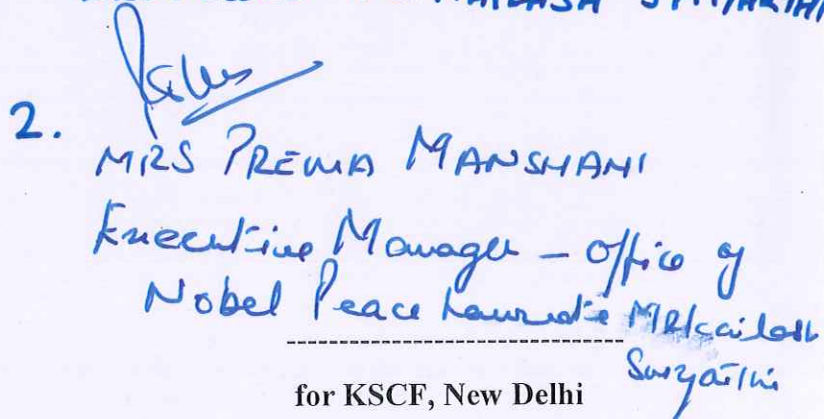 2.
MRS PREMA MANSHANI
Executive Manager - Office of
Nobel Peace Laureate Mr Kailash
Satyarthi
for KSCF, New Delhi